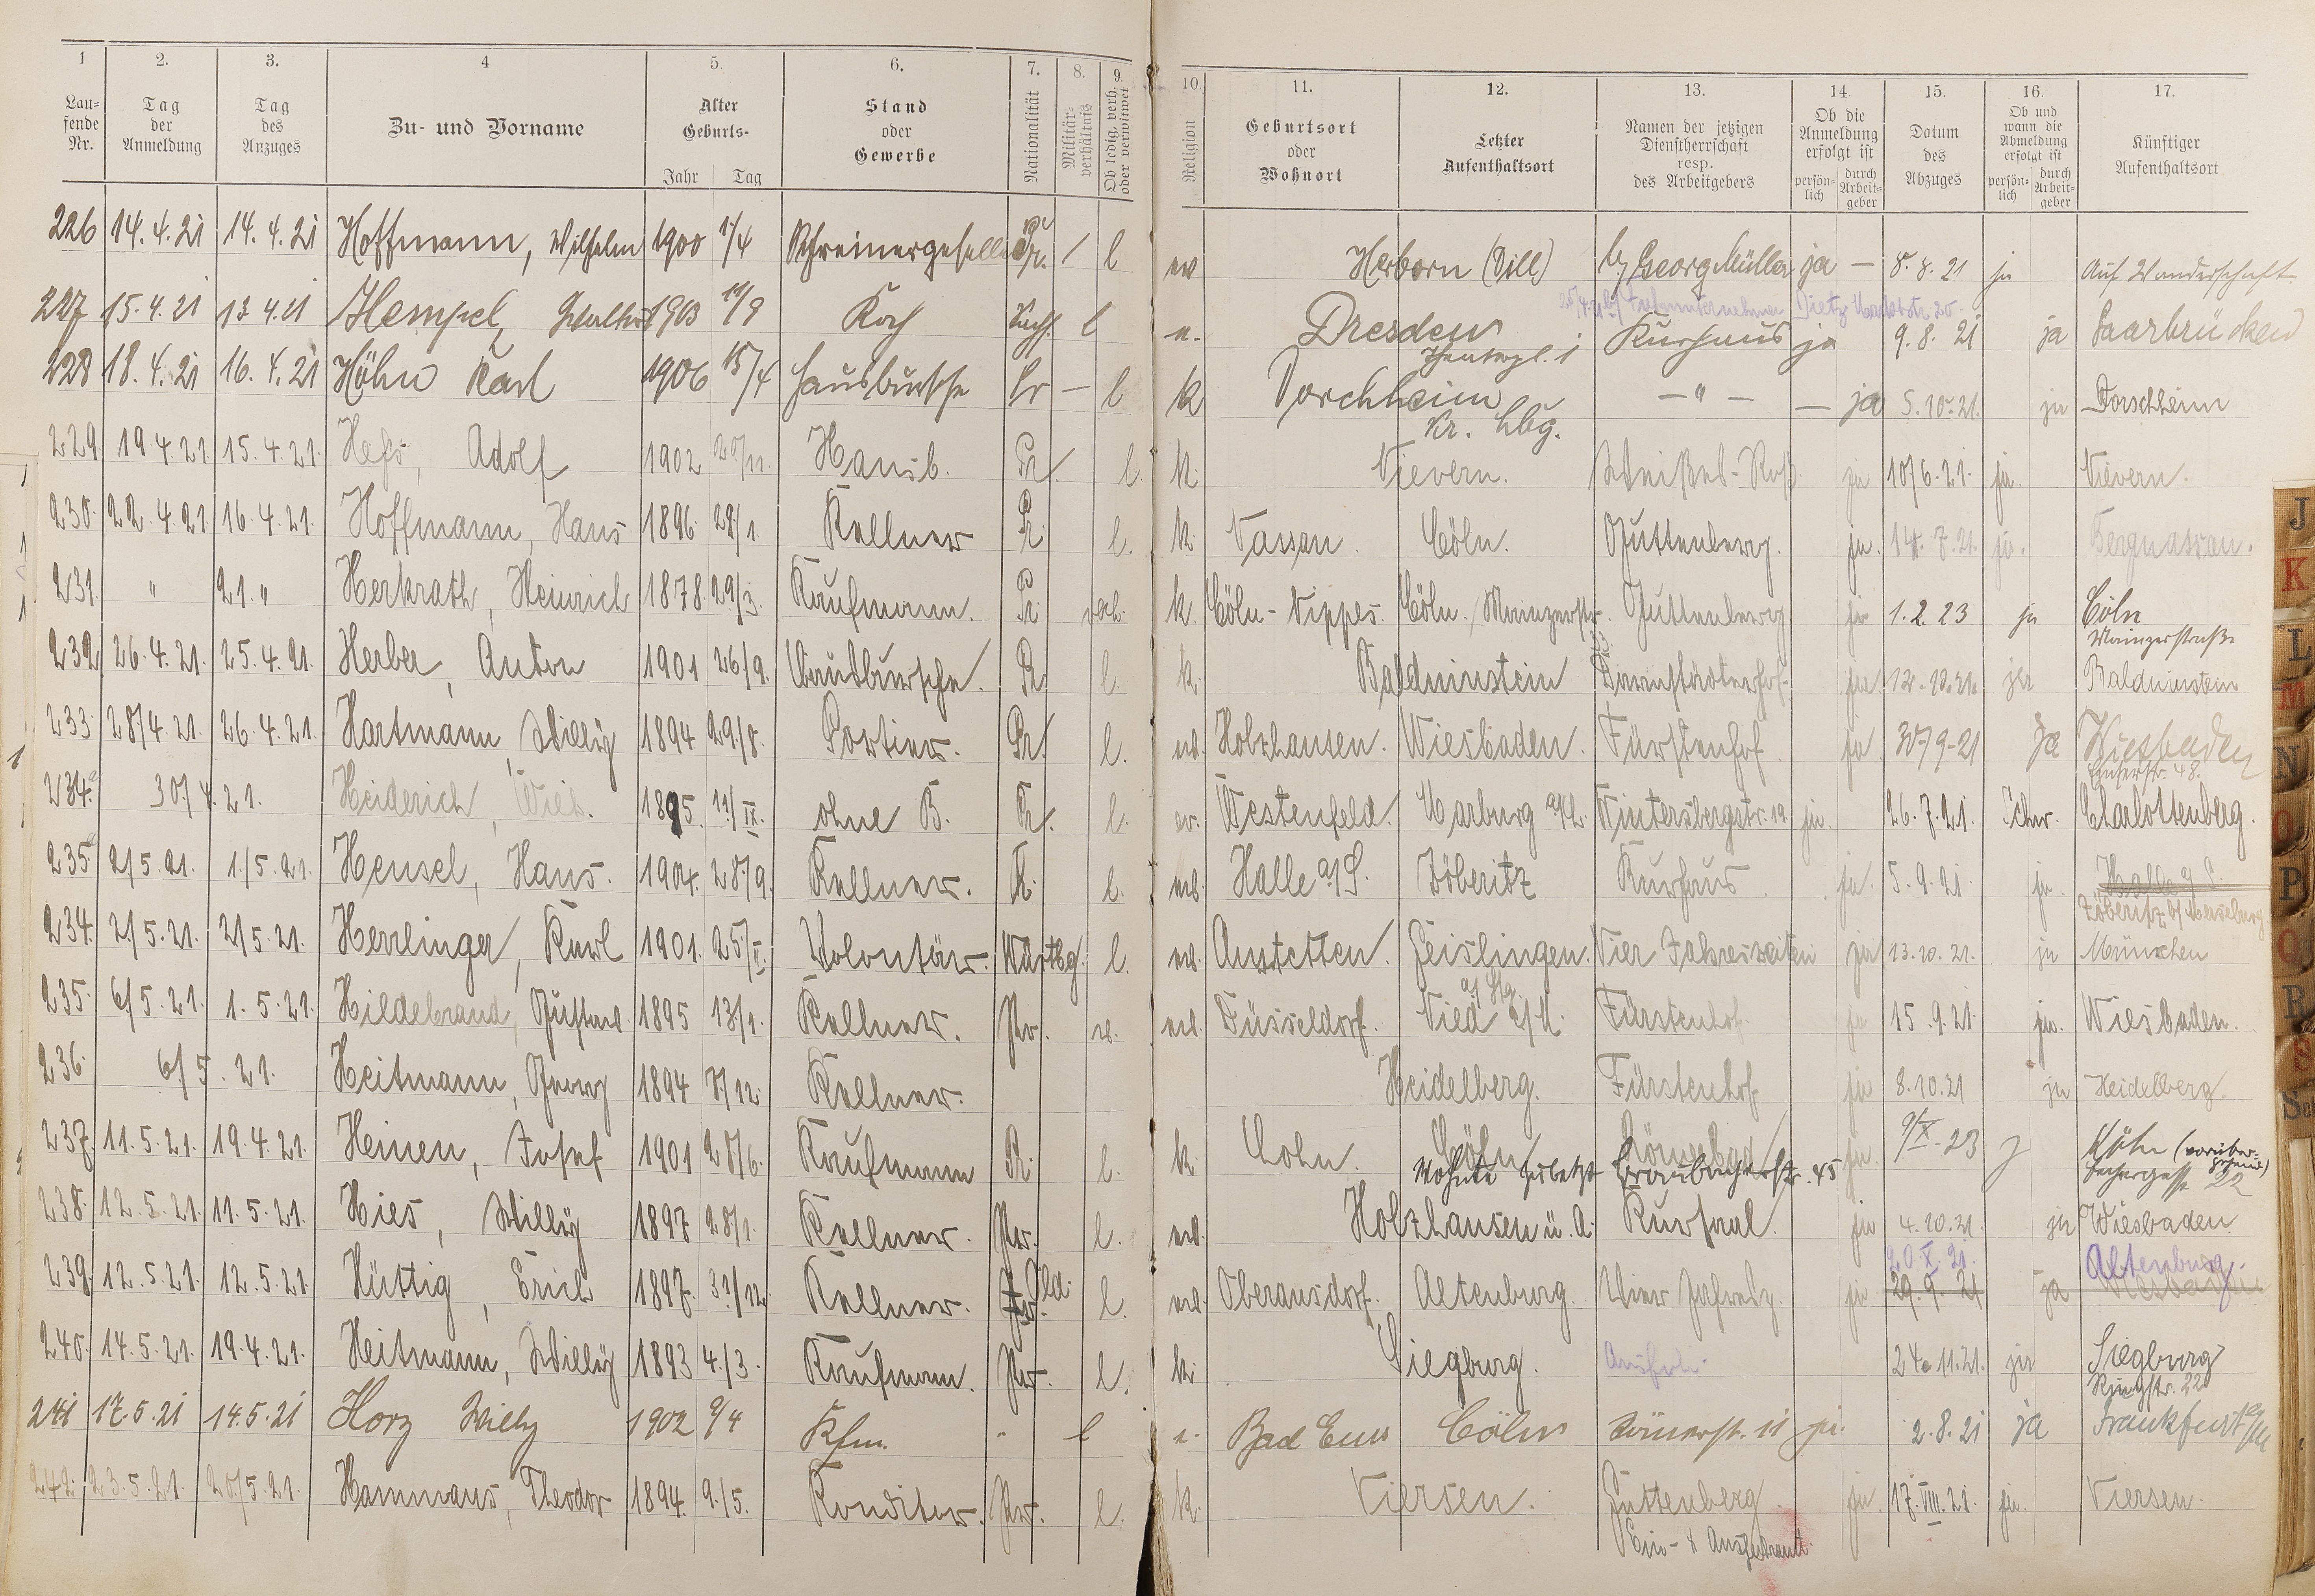 1 2. 3. 4 5. 6. 7. 8. 9. 10. 11. 12. 13. 14. 15. 16. 17.
Lau-fende Nr. Tag der Anmeldung Tag des Anzuges Zu- und Vorname Alter Geburts- Jahr Tag Stand oder Gewerbe Nationalität Militär-verhältnis Ob ledig, verh. oder verwitwet Religion Geburtsort oder Wohnort Letzter Aufenthaltsort Namen der jetzigen Dienstherrschaft resp. des Arbeitgebers Ob die Anmeldung erfolgt ist persön-lich durch Arbeit-geber Datum des Abzuges Ob und wann die Abmeldung erfolgt ist persön-lich durch Arbeit-geber Künftiger Aufenthaltsort
226 14.4.21 14.4.21 Hoffmann, Wilhelm 1900 1/4 Schreinergeselle Pr. / l ev Herborn (Dill) b/ Georg Müller ja — 8.8.21 ja Auf Wanderschaft
Dietz Marktstr. 20
227 15.4.21 13.4.21 Hempel, Walter 1903 11/9 Koch Sächs. l e. Dresden Kurhaus ja 9.8.21 ja Saarbrücken
228 18.4.21 16.4.21 Höhn Karl 1906 15/4 Hausbursche Pr — l k Dorchheim Kr. Lbg. —"— — ja 5.10.21. ja Dorchheim
229 19.4.21. 15.4.21. Hefs, Adolf 1902 20/11. Hausb. Pr. l. k. Nievern. Weißes-Roß. ja 10/6.21. ja. Nievern.
230. 22.4.21. 16.4.21. Hoffmann, Hans 1896. 29/1. Kellner Pr. l. k. Nassau. Cöln. Guttenberg. ja. 14.7.21. ja. Bergnassau.
231. " 21. " Herkrath, Heinrich 1878. 29/3. Kaufmann. Pr. k. Cöln-Nippes. Cöln. Mainzerstr. Guttenberg ja 1.2.23 ja Cöln Mainzerstraße
232 26.4.21. 25.4.21. Herber, Anton 1901 26/9. Hausbursche. Pr. l. k. Balduinstein Darmstädterhof. ja 12.10.21. ja Balduinstein
233. 28/4.21. 26.4.21. Hartmann, Willy 1894 29/8. Portier. Pr. l. ev. Holzhausen. Wiesbaden. Fürstenhof ja 30/9-21 ja Wiesbaden
234.a 30/4.21. Heiderich, Wilh. 1895. 11/IX. ohne B. Pr. l. ev. Westenfeld. Marburg a/L. Wintersbergstr. 19. ja. 26.7.21. Charlottenberg.
235.a 2/5.21. 1./5.21. Hensel, Hans. 1904. 28/9. Kellner. Pr. l. ev. Halle a/S. Zöberitz Kurhaus. ja. 5.9.21. ja. Halle a/S. Zöberitz b/ Merseburg
234. 2/5.21. 2/5.21. Herrlinger, Karl 1901. 25/II. Volontär. Württbg. l. ev. Amstetten. Geislingen. a/Stg Vier Jahreszeiten ja 13.10.21. ja München
235. 6/5.21. 1.5.21. Hildebrand, Gustav. 1895 13/1. Kellner. Pr. w. ev. Düsseldorf. Nied a/M. Fürstenhof. ja 15.9.21. ja. Wiesbaden.
236. 6/5.21. Heitmann, Georg 1894 8/12. Kellner. Heidelberg. Fürstenhof. ja 8.10.21 ja Heidelberg.
237. 11.5.21. 19.4.21. Heinen, Josef 1901 28/6. Kaufmann Pr. l. k. Lohn. Cöln Römerbad ja. 9/X-23 j Köln (vorüber-gehend) 22
Wohnte zuletzt Braubacherstr. 45
238. 12.5.21. 11.5.21. Hies, Willy 1897 28/1. Kellner. Pr. l. ev. Holzhausen ü. A. Kursaal. ja 4.10.21. ja Wiesbaden
20.X.21. Altenburg.
239. 12.5.21. 12.5.21. Hüttig, Erich 1897. 31/12. Kellner. l. ev. Oberarnsdorf. Altenburg. Vier Jahresz. ja. 29.9.21 ja Wiesbaden
240. 14.5.21. 19.4.21. Heitmann, Willy 1893 4./3. Kaufmann. Pr. l. k. Siegburg. 24.11.21. ja Siegburg Ringstr. 22
241 17.5.21 14.5.21 Horz Willy 1902 9/4 Kfm. " l e. Bad Ems Cöln Römerstr. 11 ja. 2.8.21 ja Frankfurt a/M
242. 23.5.21. 20/5.21. Hammans, Theodor 1894. 9./5. Konditor. Pr. l. k. Viersen. Guttenberg ja. 17.VIII.21. ja. Viersen.
J
K
L
M
N
O
P
Q
R
S